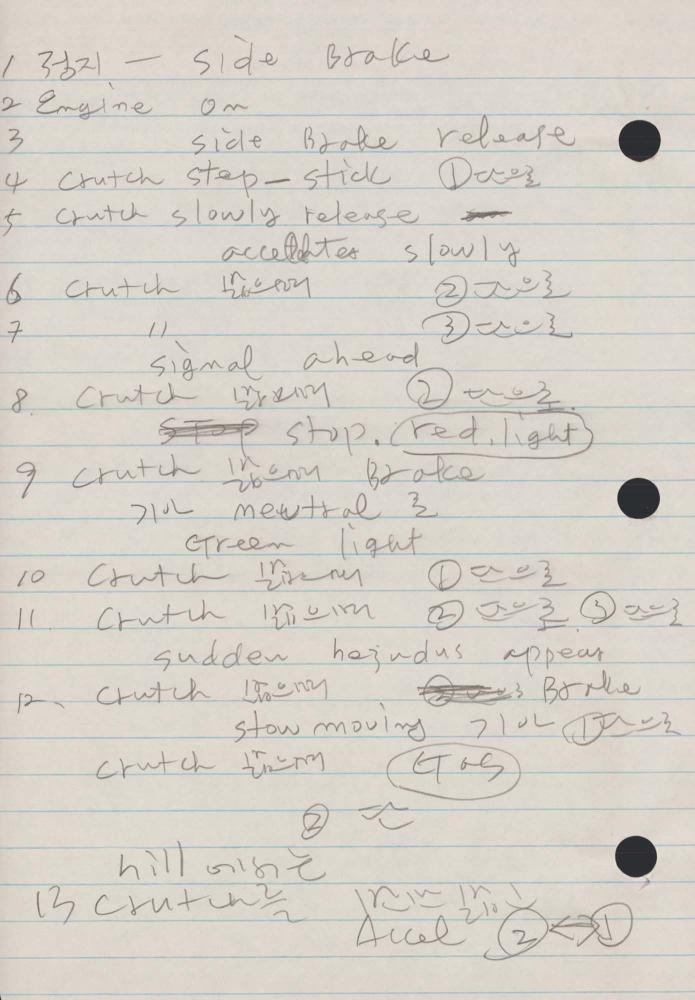 1 정지 - side Brake
2 Engine on
3 side Brake release
4 crutch step - stick ①단으로
5 crutch slowly release
slowly
6 crutch 밟으며 ②단으로
7 〃 ③단으로
signal ahead
8. crutch 밟으며 ②단으로.
stop. red. light
9 crutch 밟으며 Brake
기아 neutral 로
Green light
10 crutch 밟으며 ①단으로
11. crutch 밟으며 ② 단으로 ③ 단으로
sudden appear
12. crutch 밟으며 Brake
slow moving 기아 ①단으로
crutch 밟으며 Gas
② 단
hill 에서는
13 crutch를
Accel ② ↔ ①